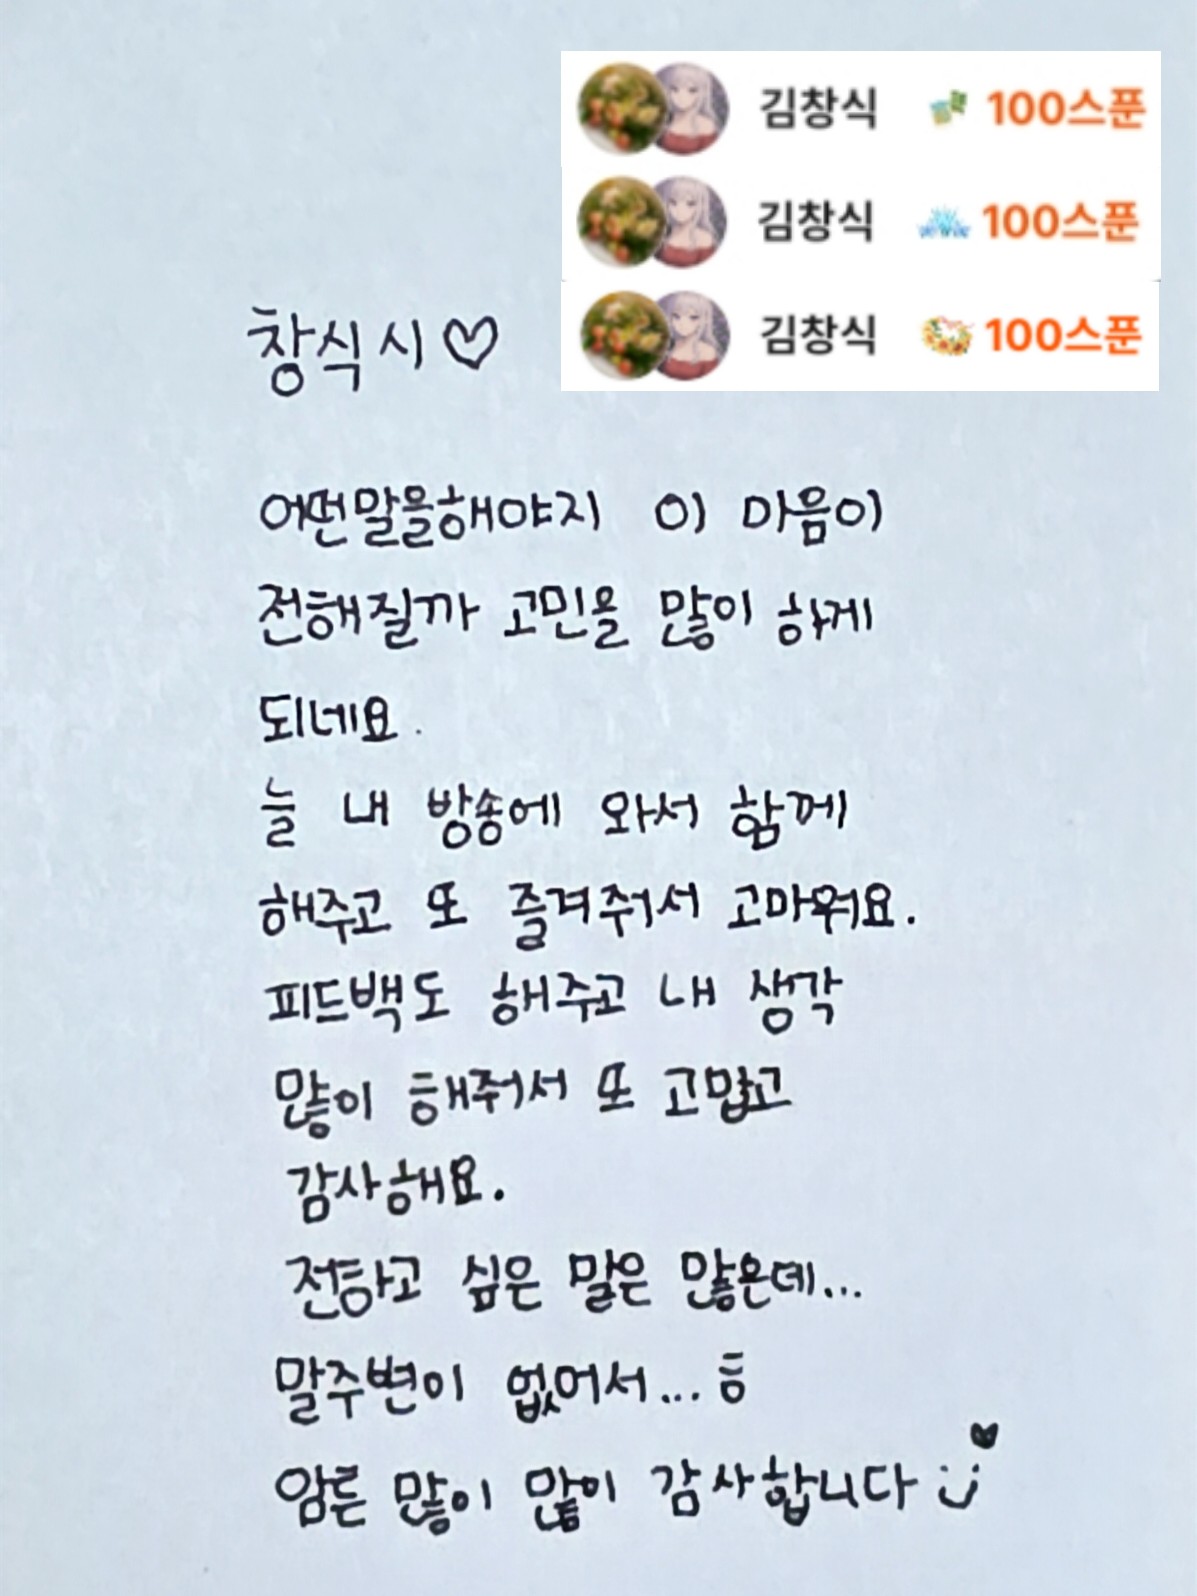 김창식 100스푼
김창식 100스푼
김창식 100스푼
창식시♡
어떤말을해야지 이 마음이
전해질까 고민을 많이 하게
되네요.
늘 내 방송에 와서 함께
해주고 또 즐겨줘서 고마워요.
피드백도 해주고 내 생각
많이 해줘서 또 고맙고
감사해요.
전하고 싶은 말은 많은데...
말주변이 없어서...흠
암튼 많이 많이 감사합니다